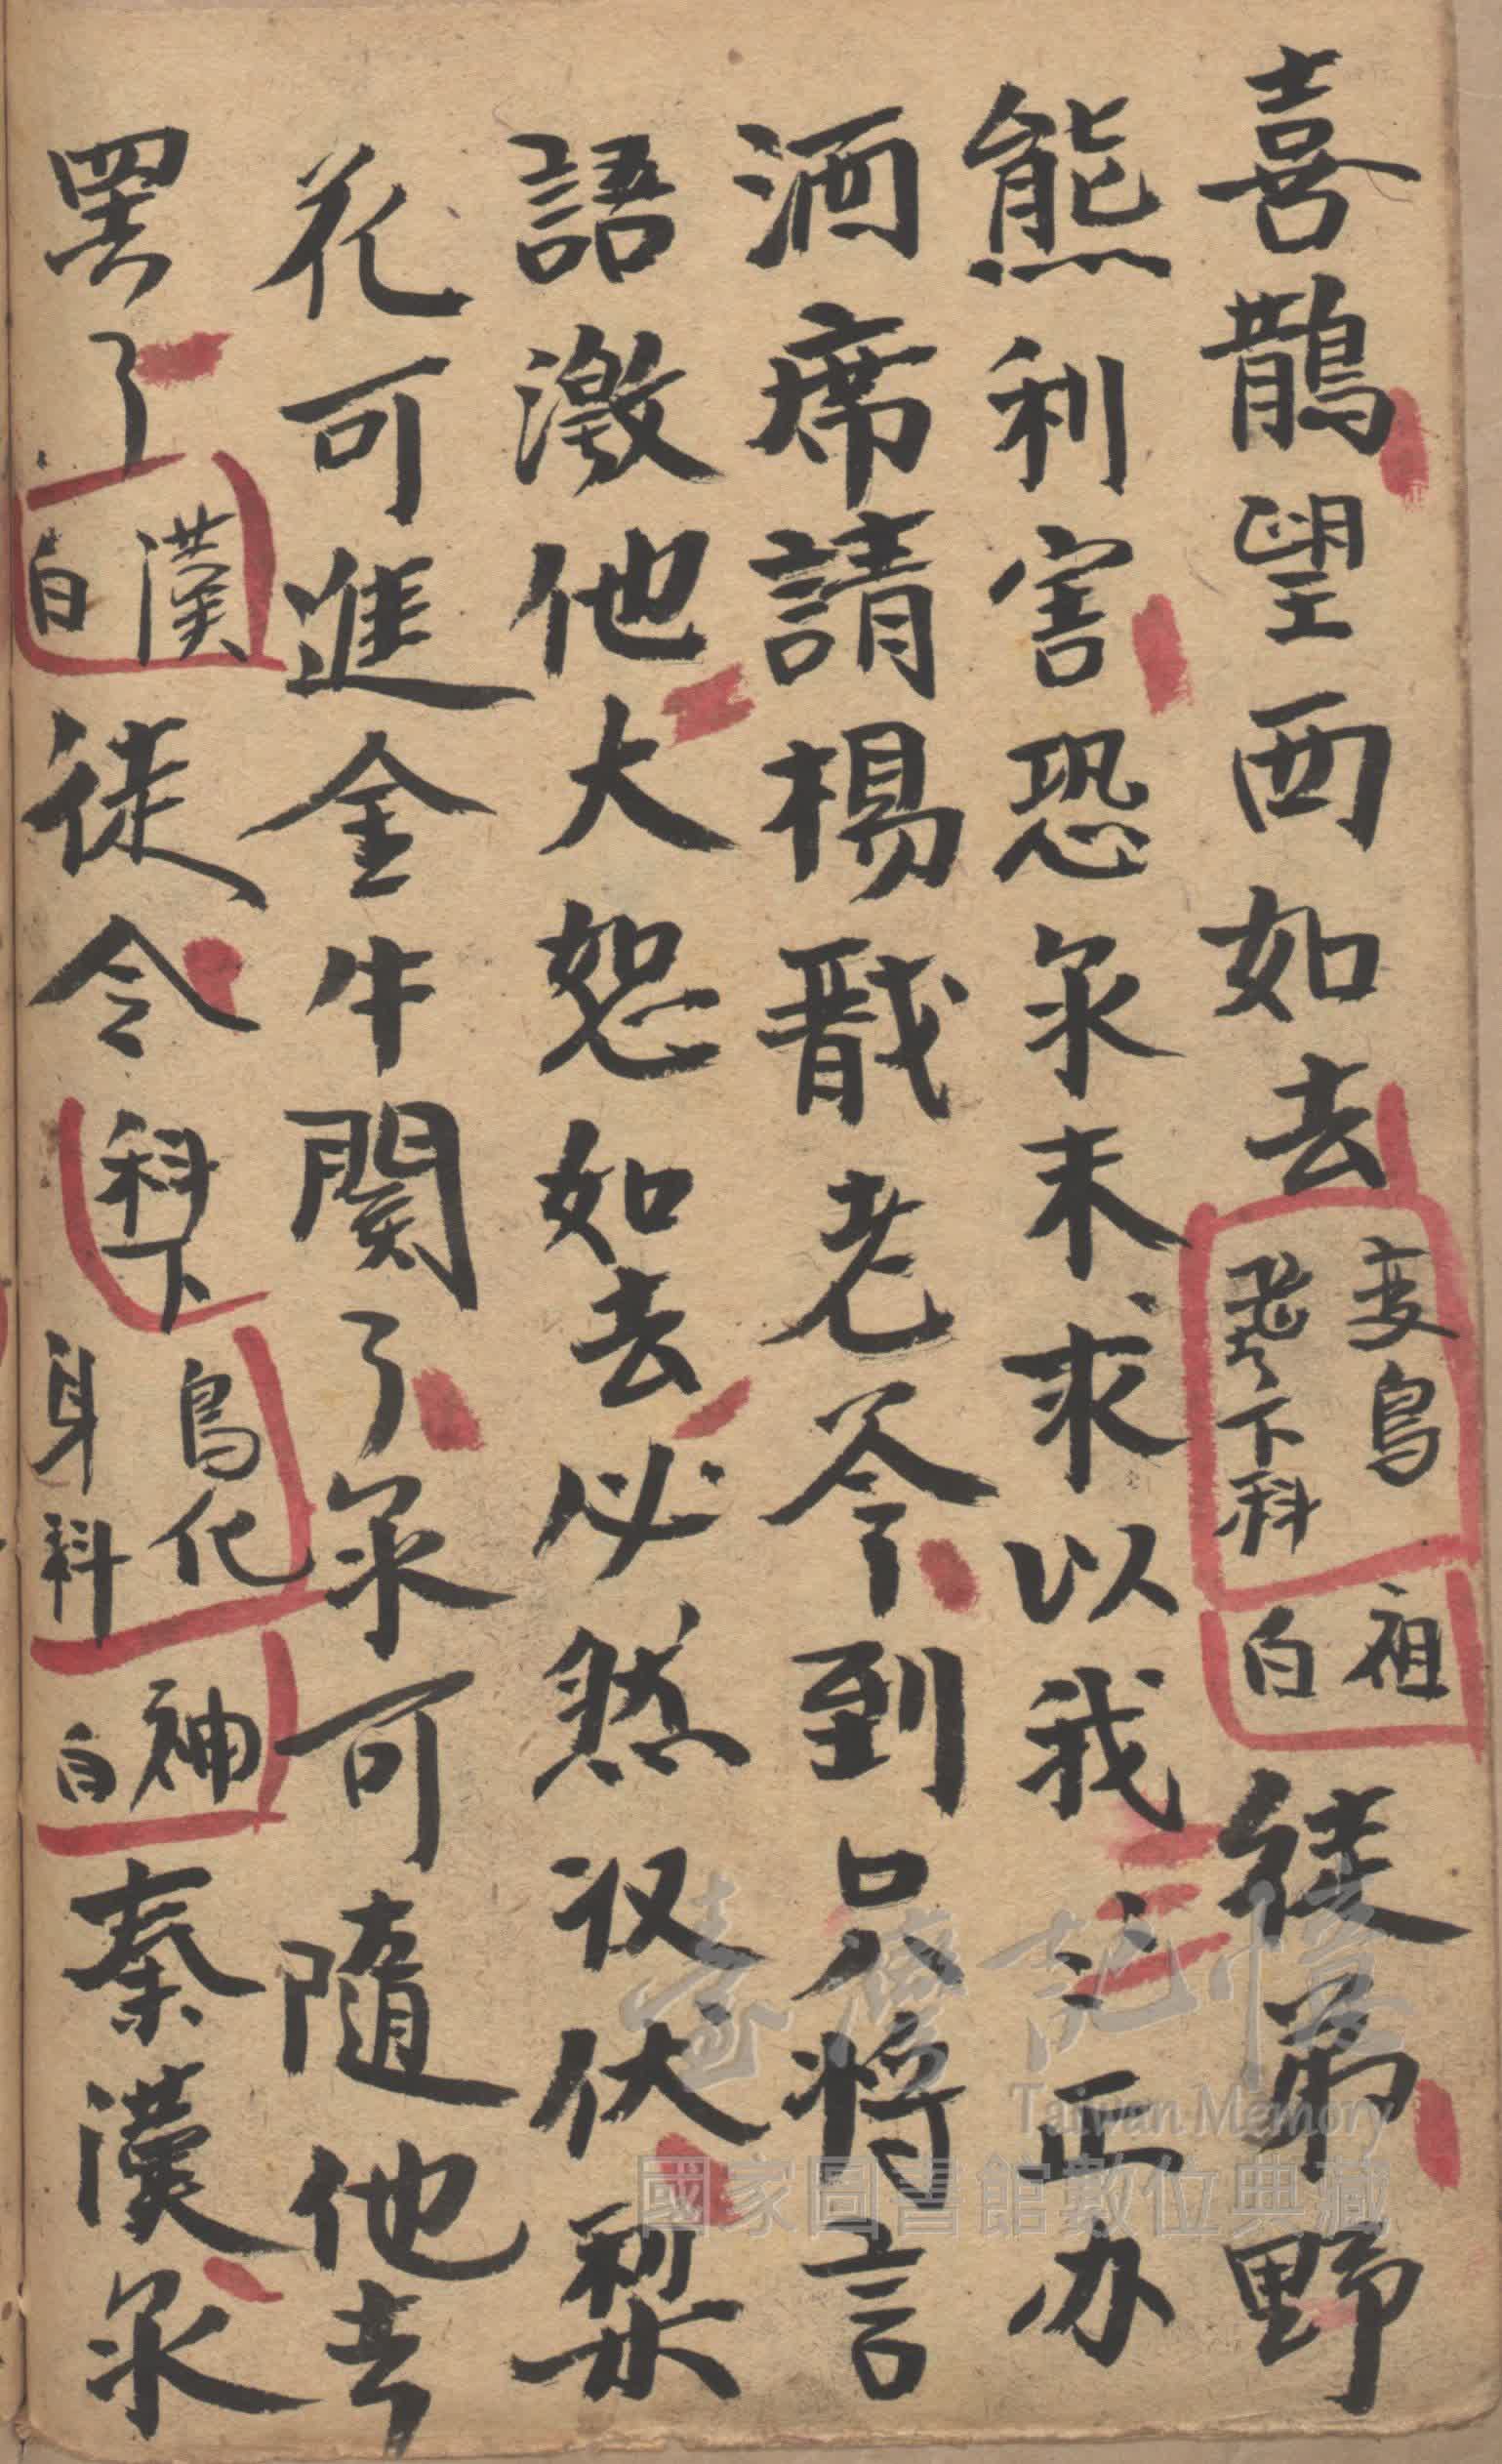 喜鵲望西如去 変鳥飛下科 祖白 徒弟野
熊利害恐汞末求以我 正办
洒席請楊戩老爷到只將言
語激他大怒如去必然収伏梨
花可進金牛関了汞可隨他去
罢了 漢白 徒令 科下 鳥化身科 神白 秦漢汞
臺灣記憶
Taiwan Memory
國家圖書館數位典藏